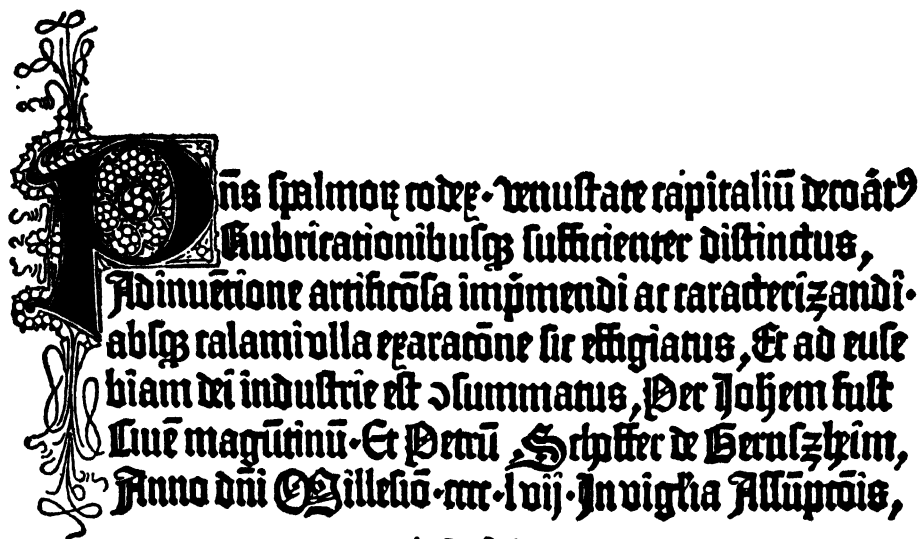 Pn̄s spalmoꝝ codex· venustate capitaliū decoātꝰ
Rubricationibusqꝫ sufficienter distinctus,
Adinuētione artificōsa imp̄mendi ac caracterizandi·
absqꝫ calami vlla exaracōne sic effigiatus, Et ad euse
biam dei industrie est ↄsummatus, Per Johem fust
Ciuē magūtinū· Et Petrū Schoffer de Gernszheim,
Anno dn̄i Millesiō·cccc·lvij· In vigl̓ia Assūptōis,